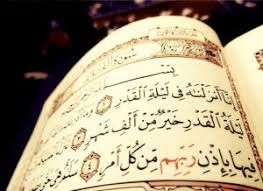 بِسْمِ
إِنَّآ أَنزَلْنَٰهُ فِى لَيْلَةِ ٱلْقَدْرِ
لَيْلَةُ ٱلْقَدْرِ خَيْرٌ مِّنْ أَلْفِ شَهْرٍ
فِيهَا بِإِذْنِ رَبِّهِم مِّن كُلِّ أَمْرٍ ٤ سَلَٰمٌ هِىَ